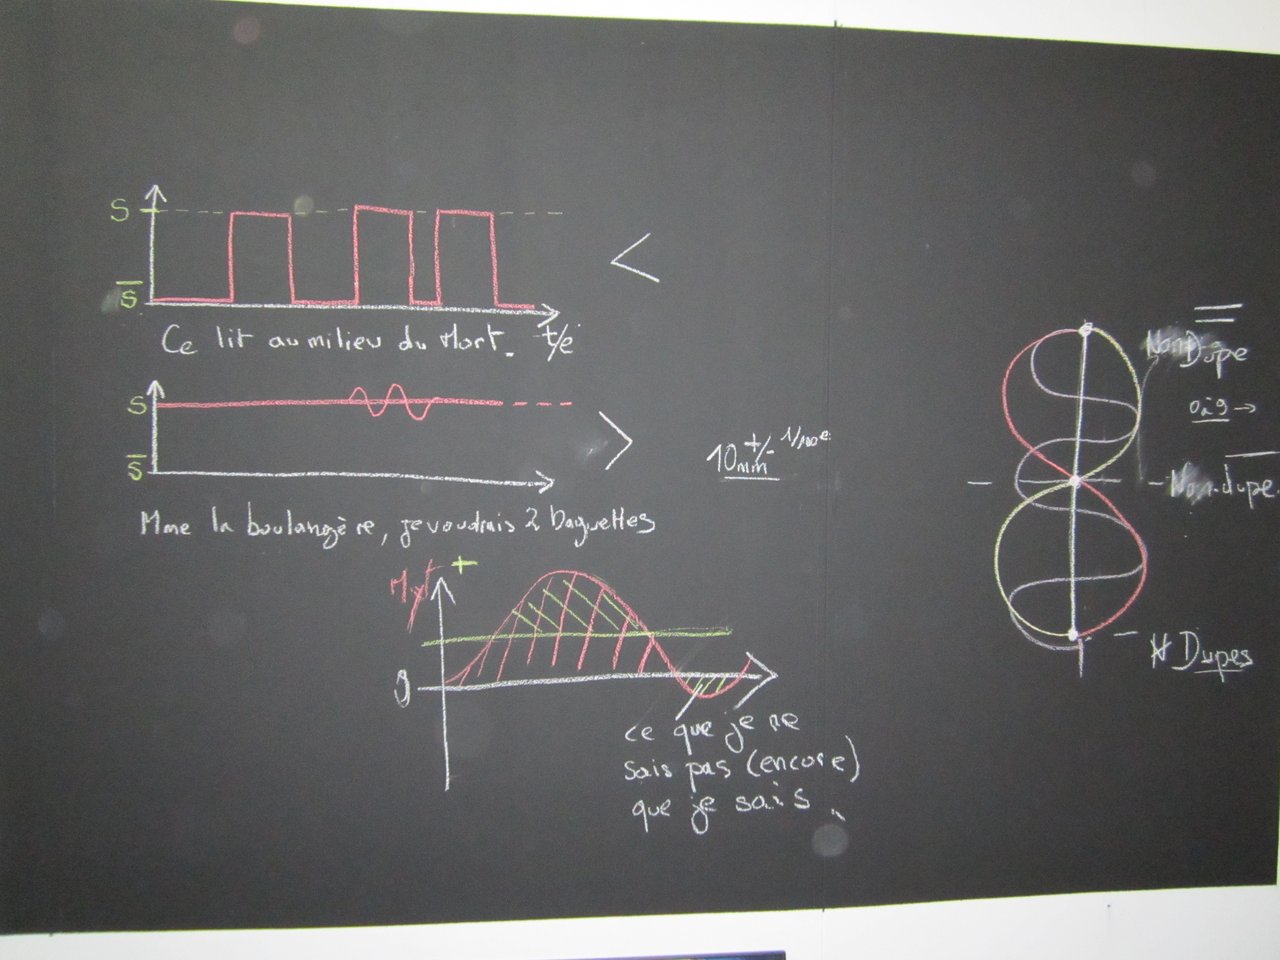 S
S̅
Ce lit au milieu du Mort. t/e
<
S
S̅
>
Mme la boulangère, je voudrais 2 baguettes
10mm +/- 1/100e
+
0
ce que je ne
sais pas (encore)
que je sais.
Non Dupe
0à9 →
- Non-dupe
Dupes